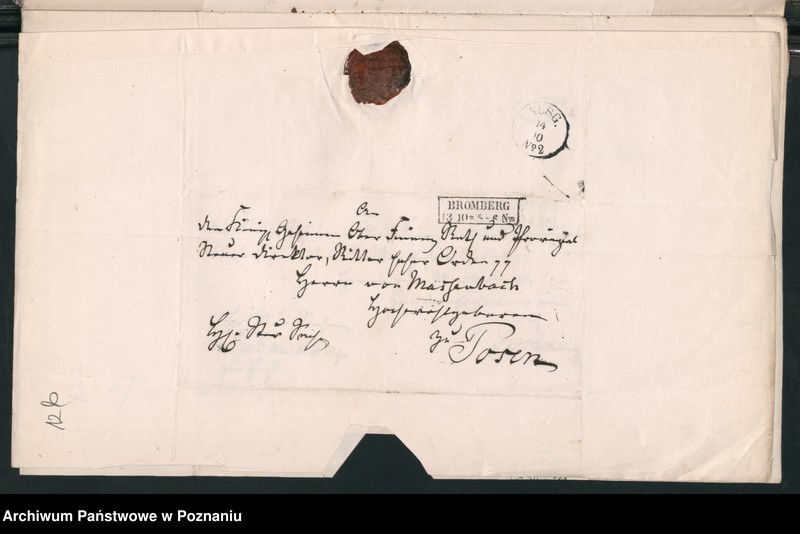 AUSG.
14
10
No 2
BROMBERG
13 10 * 5-6 Nm
An
den Königl Geheimen Ober Finanz Rath und Provinzial
Steuer Direktor, Ritter hoher Orden pp
Herrn von Massenbach
Hochwohlgeboren
zu
Posen
Archiwum Państwowe w Poznaniu